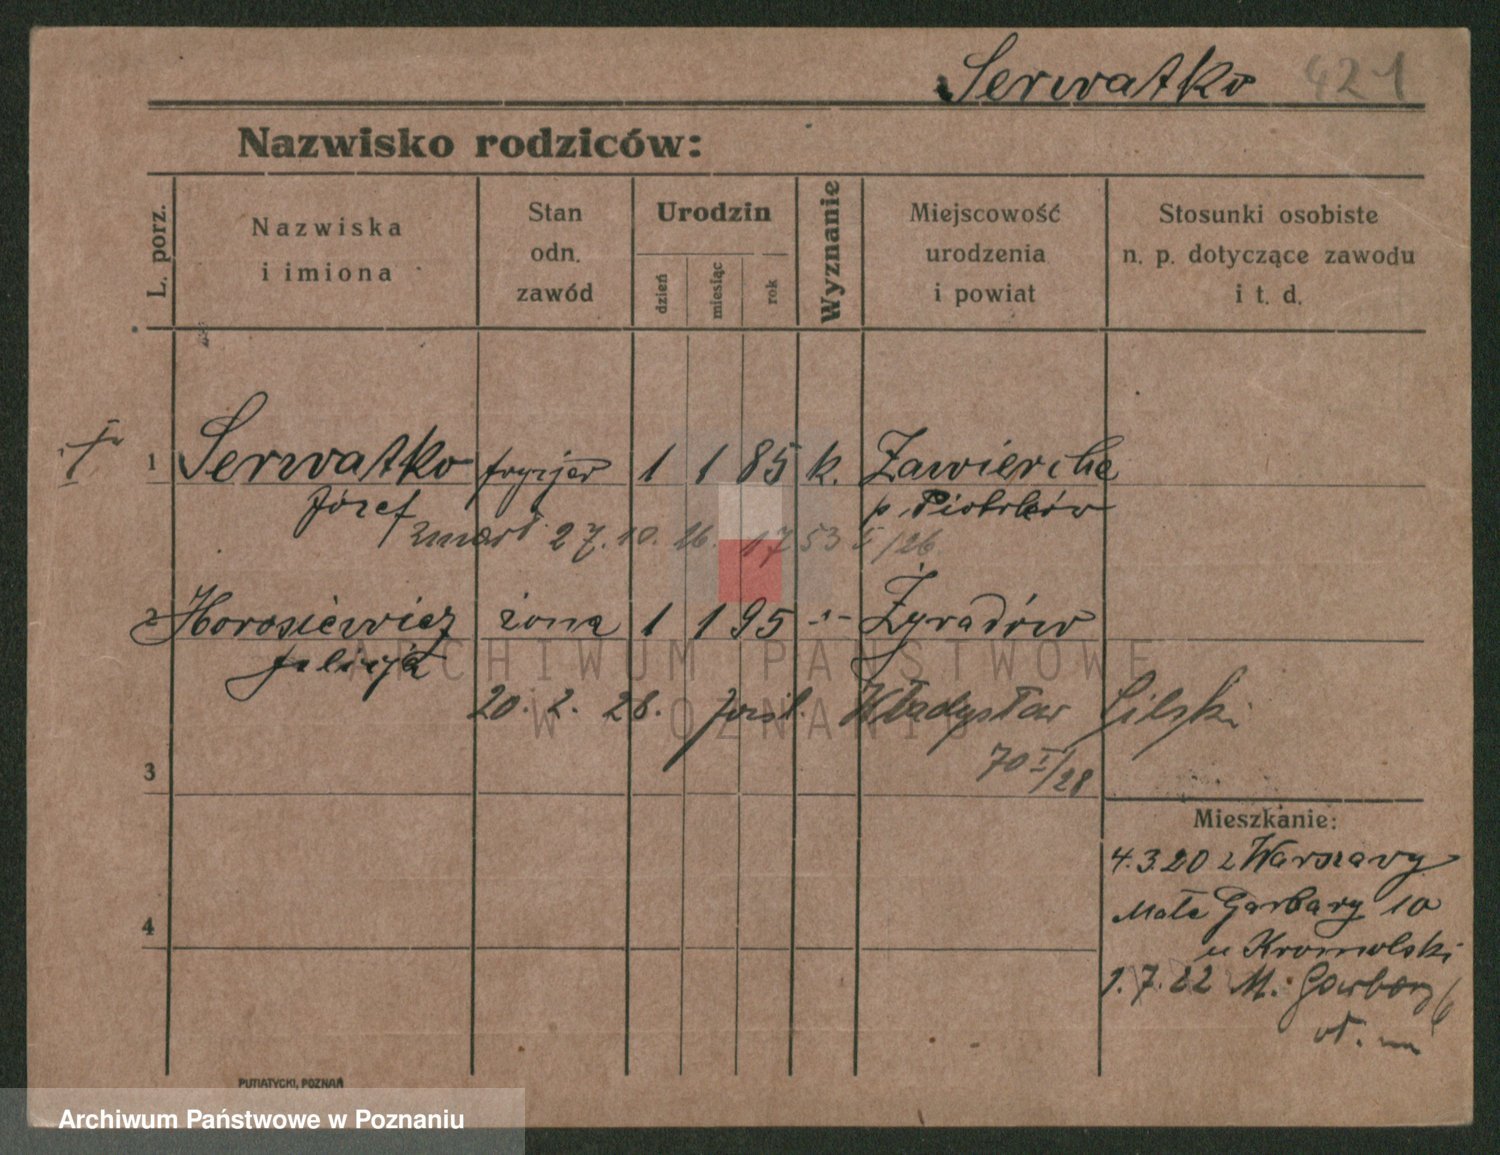 Serwatko 421
Nazwisko rodziców:
L. porz.
Nazwiska
i imiona
Stan
odn.
zawód
Urodzin
dzień
miesiąc
rok
Wyznanie
Miejscowość
urodzenia
i powiat
Stosunki osobiste
n. p. dotyczące zawodu
i t. d.
1 Serwatko fryzjer 1 1 85 k. Zawiercie
Józef p. Piotrków
zmarł 27.10.26. 1753 I/26
2 Horosiewicz żona 1 1 95 -"- Żyradów
Julianna
20. 2. 28. Władysław Gilski
70 I/28
3
4
Mieszkanie:
4.3.20 z Warszawy
Małe Garbary 10
u Kromolski
1.7.22 M. Garbary 6
wł. m
PUTIATYCKI, POZNAŃ
ARCHIWUM PAŃSTWOWE
W POZNANIU
Archiwum Państwowe w Poznaniu